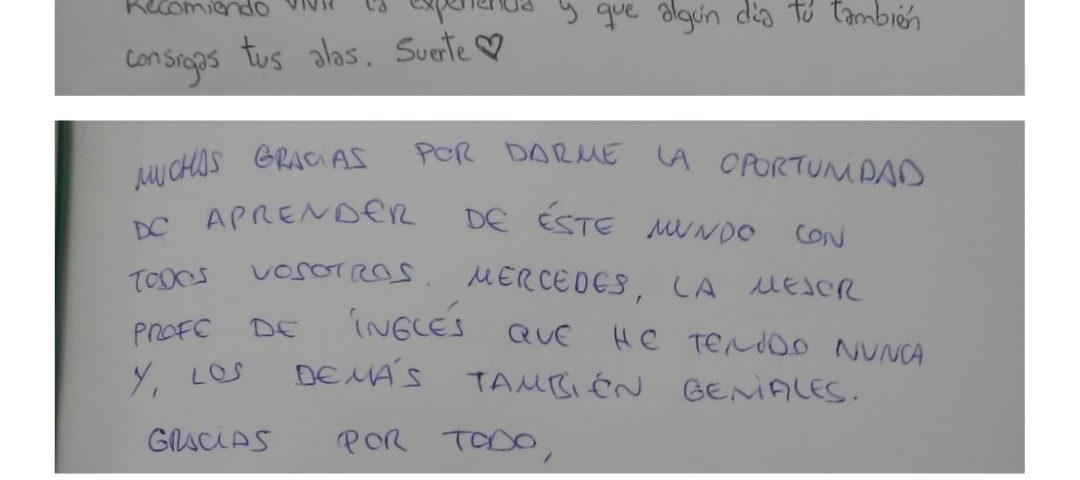 Recomiendo vivir la experiencia y que algún día tú también
consigas tus alas. Suerte♡
MUCHAS GRACIAS POR DARME LA OPORTUNIDAD
DE APRENDER DE ÉSTE MUNDO CON
TODOS VOSOTROS. MERCEDES, LA MEJOR
PROFE DE INGLÉS QUE HE TENIDO NUNCA
Y, LOS DEMÁS TAMBIÉN GENIALES.
GRACIAS POR TODO,